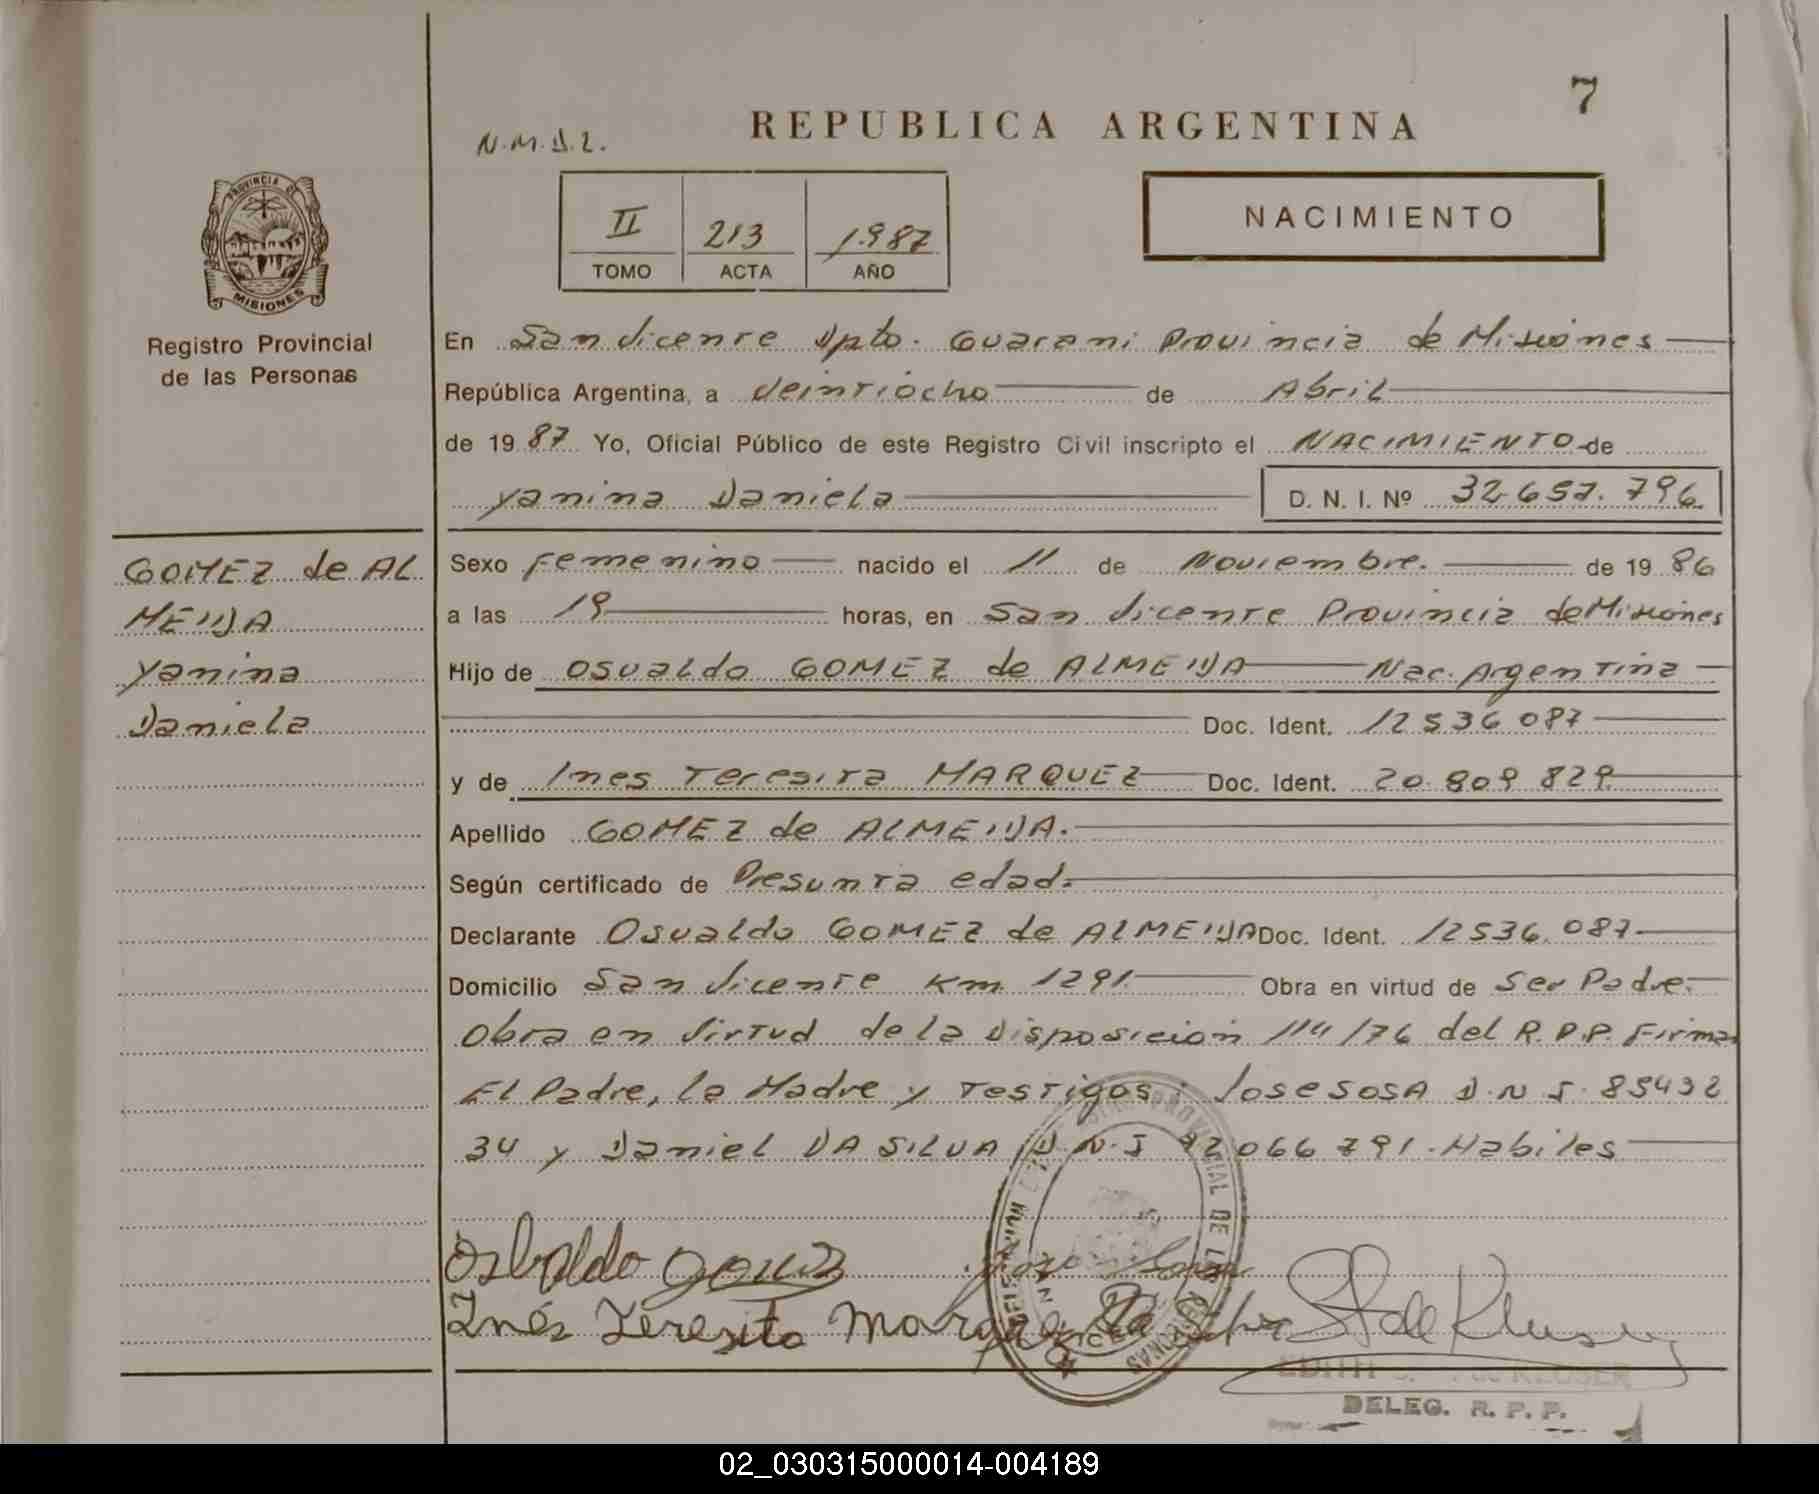 7
REPUBLICA ARGENTINA
N.M.D.2.
II 213 1987
TOMO ACTA AÑO
NACIMIENTO
PROVINCIA DE
MISIONES
Registro Provincial
de las Personas
En San Vicente Dpto. Guarani Provincia de Misiones
República Argentina, a Veintiocho de Abril
de 1987 Yo, Oficial Público de este Registro Civil inscripto el NACIMIENTO de
Yanina Daniela D. N. I. Nº 32.657.796
GOMEZ de AL
MEIDA
Yanina
Daniela
Sexo Femenino nacido el 11 de Noviembre. de 1986
a las 19 horas, en San Vicente Provincia de Misiones
Hijo de Osvaldo GOMEZ de ALMEIDA Nac. Argentina
Doc. Ident. 12536087
y de Ines Teresita MARQUEZ Doc. Ident. 20.809829
Apellido GOMEZ de ALMEIDA.
Según certificado de Presunta edad.
Declarante Osvaldo GOMEZ de ALMEIDA Doc. Ident. 12536.087
Domicilio San Vicente Km 1291 Obra en virtud de Ser Padre.
Obra en Virtud de la Disposición 114/76 del R.P.P. Firman
El Padre, la Madre y Testigos: Jose SOSA D.N.I. 85432
34 y Daniel DA SILVA D.N.I 12066791. Habiles
Osbaldo gomez Jose Sosa
Inés Teresita Marque Da Silva
EDITH de KLUSER
DELEG. R. P. P.
02_030315000014-004189